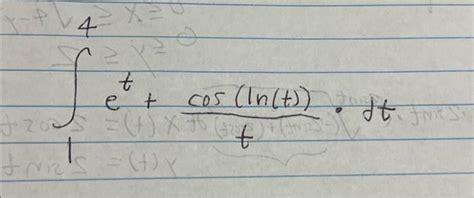 ∫₁⁴ e^t + cos(ln(t))/t · dt